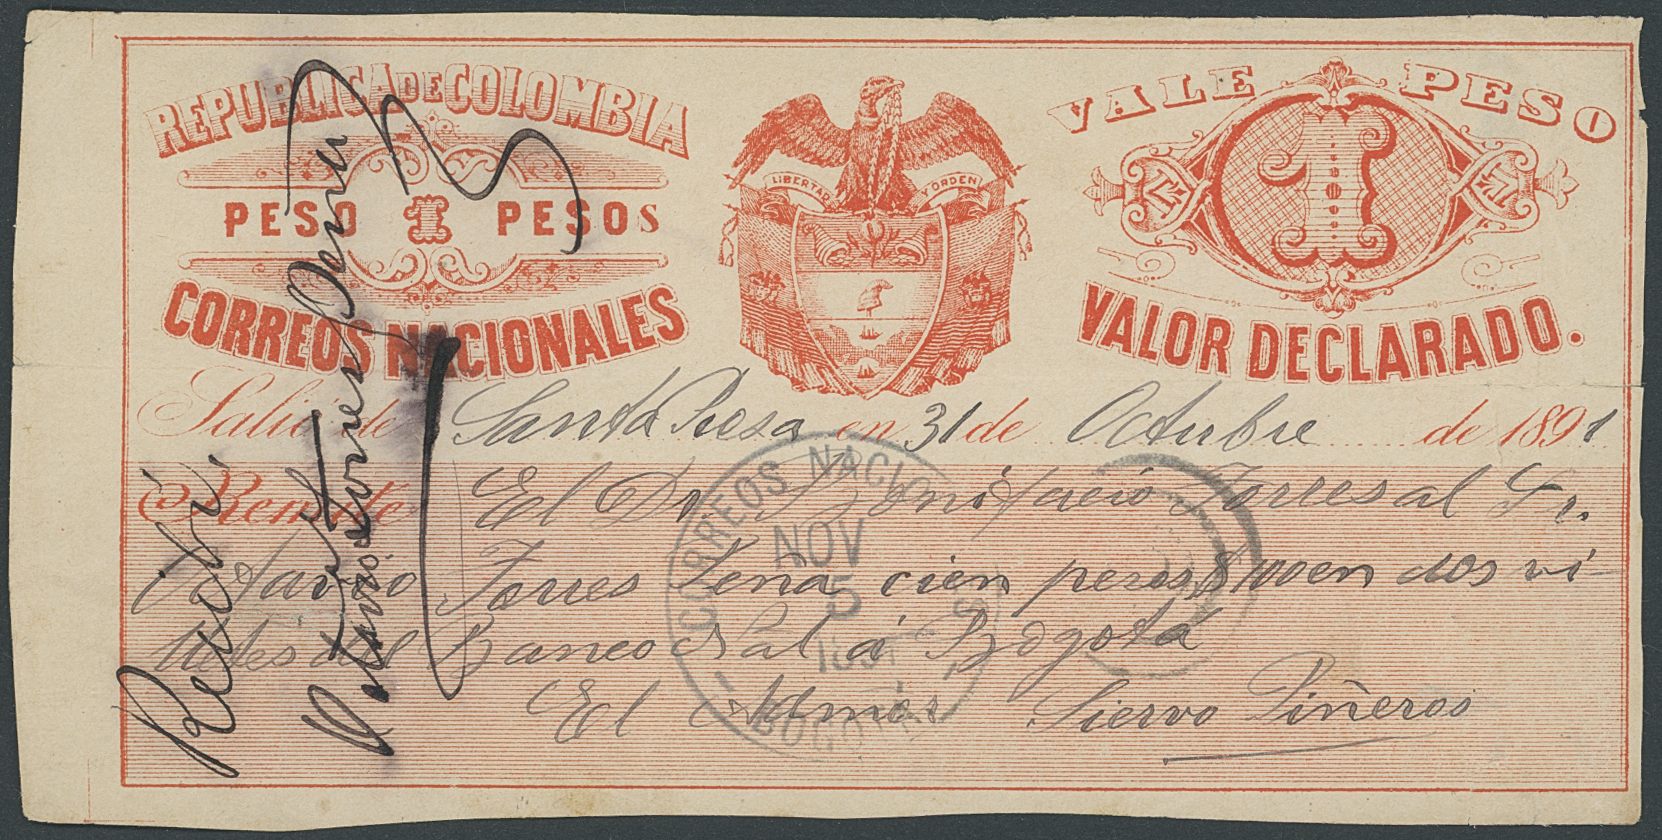 REPUBLICA DE COLOMBIA
PESO 1 PESOS
CORREOS NACIONALES
LIBERTAD Y ORDEN
VALE 1 PESO
VALOR DECLARADO.
Salió de Santa Rosa en 31 de Octubre de 1891
Remite El Dr. Bonifacio Torres al Sr.
Octavio Torres Pena cien pesos $100 en dos vi-
lletes del Banco Nal á Bogotá
El Admor Siervo Piñeros
Recibí
Octavio Torres Pena
CORREOS NACIONALES
NOV
5
1891
BOGOTA